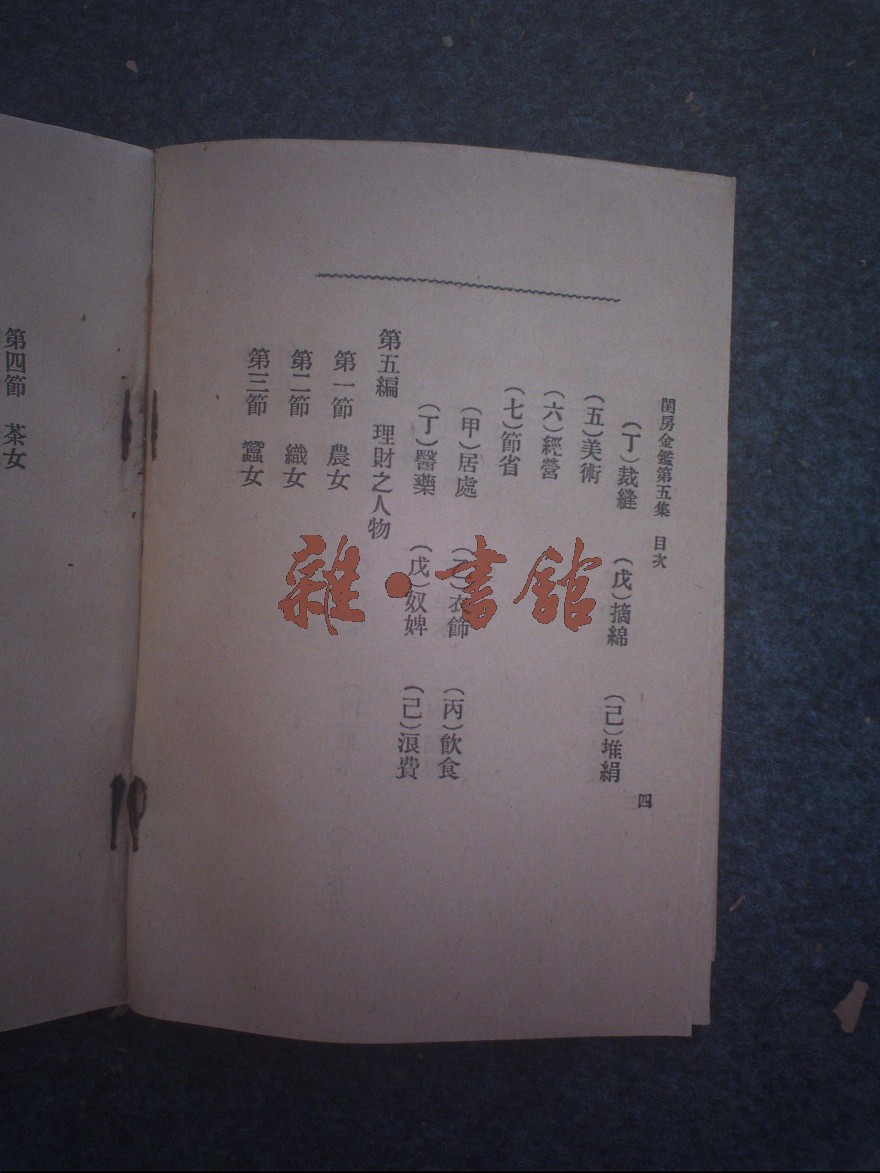 閨房金鑑第五集　目次
四
（丁）裁縫　（戊）摘綿　（己）堆絹
（五）美術
（六）經營
（七）節省
（甲）居處　（乙）衣飾　（丙）飲食
（丁）醫藥　（戊）奴婢　（己）浪費
第五編　理財之人物
第一節　農女
第二節　織女
第三節　蠶女
第四節　茶女
雜·書舘